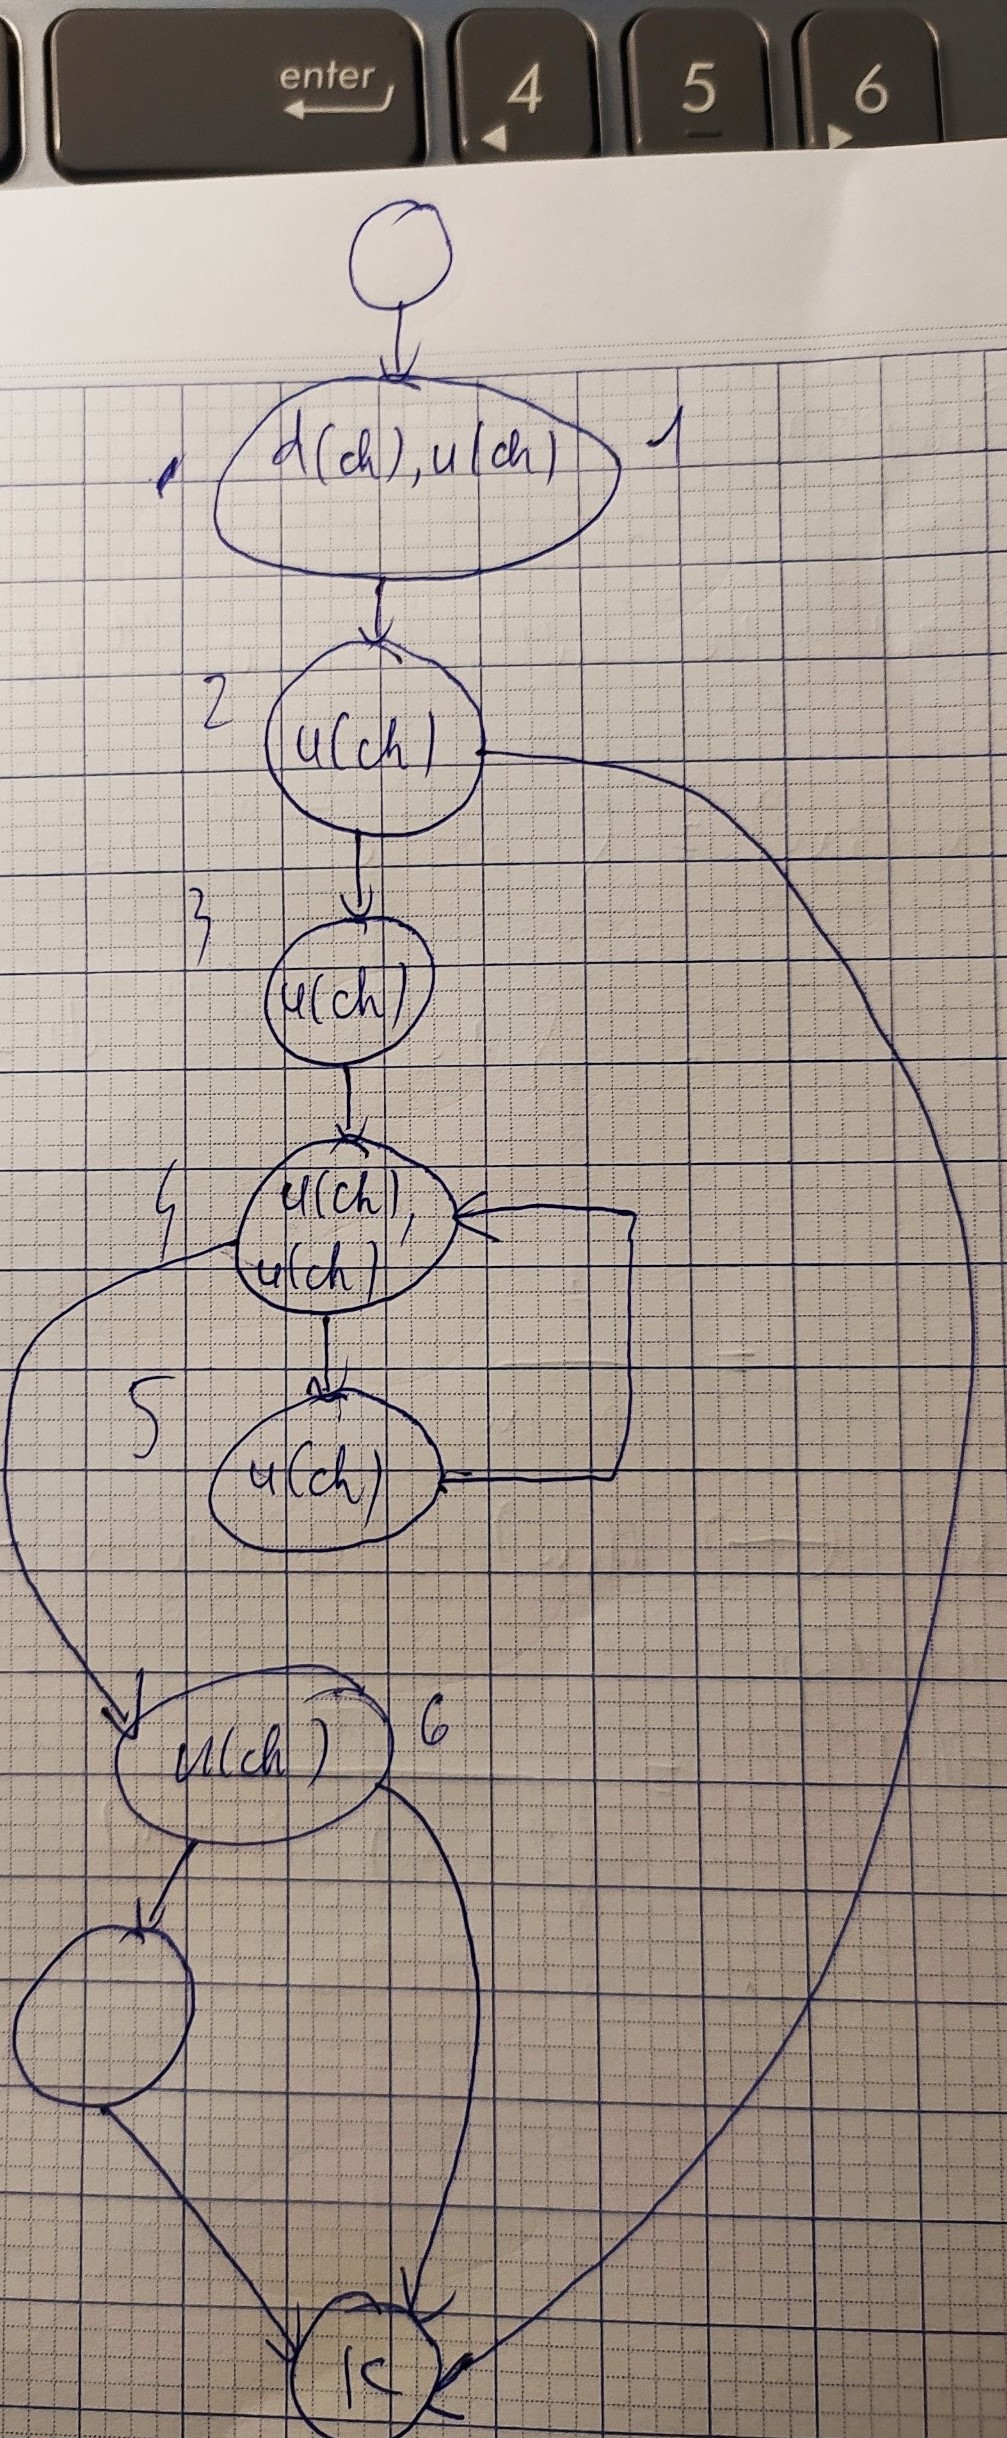 enter
4
5
6
d(ch), u(ch)
1
2
u(ch)
3
u(ch)
4
u(ch),
u(ch)
5
u(ch)
u(ch)
6
K